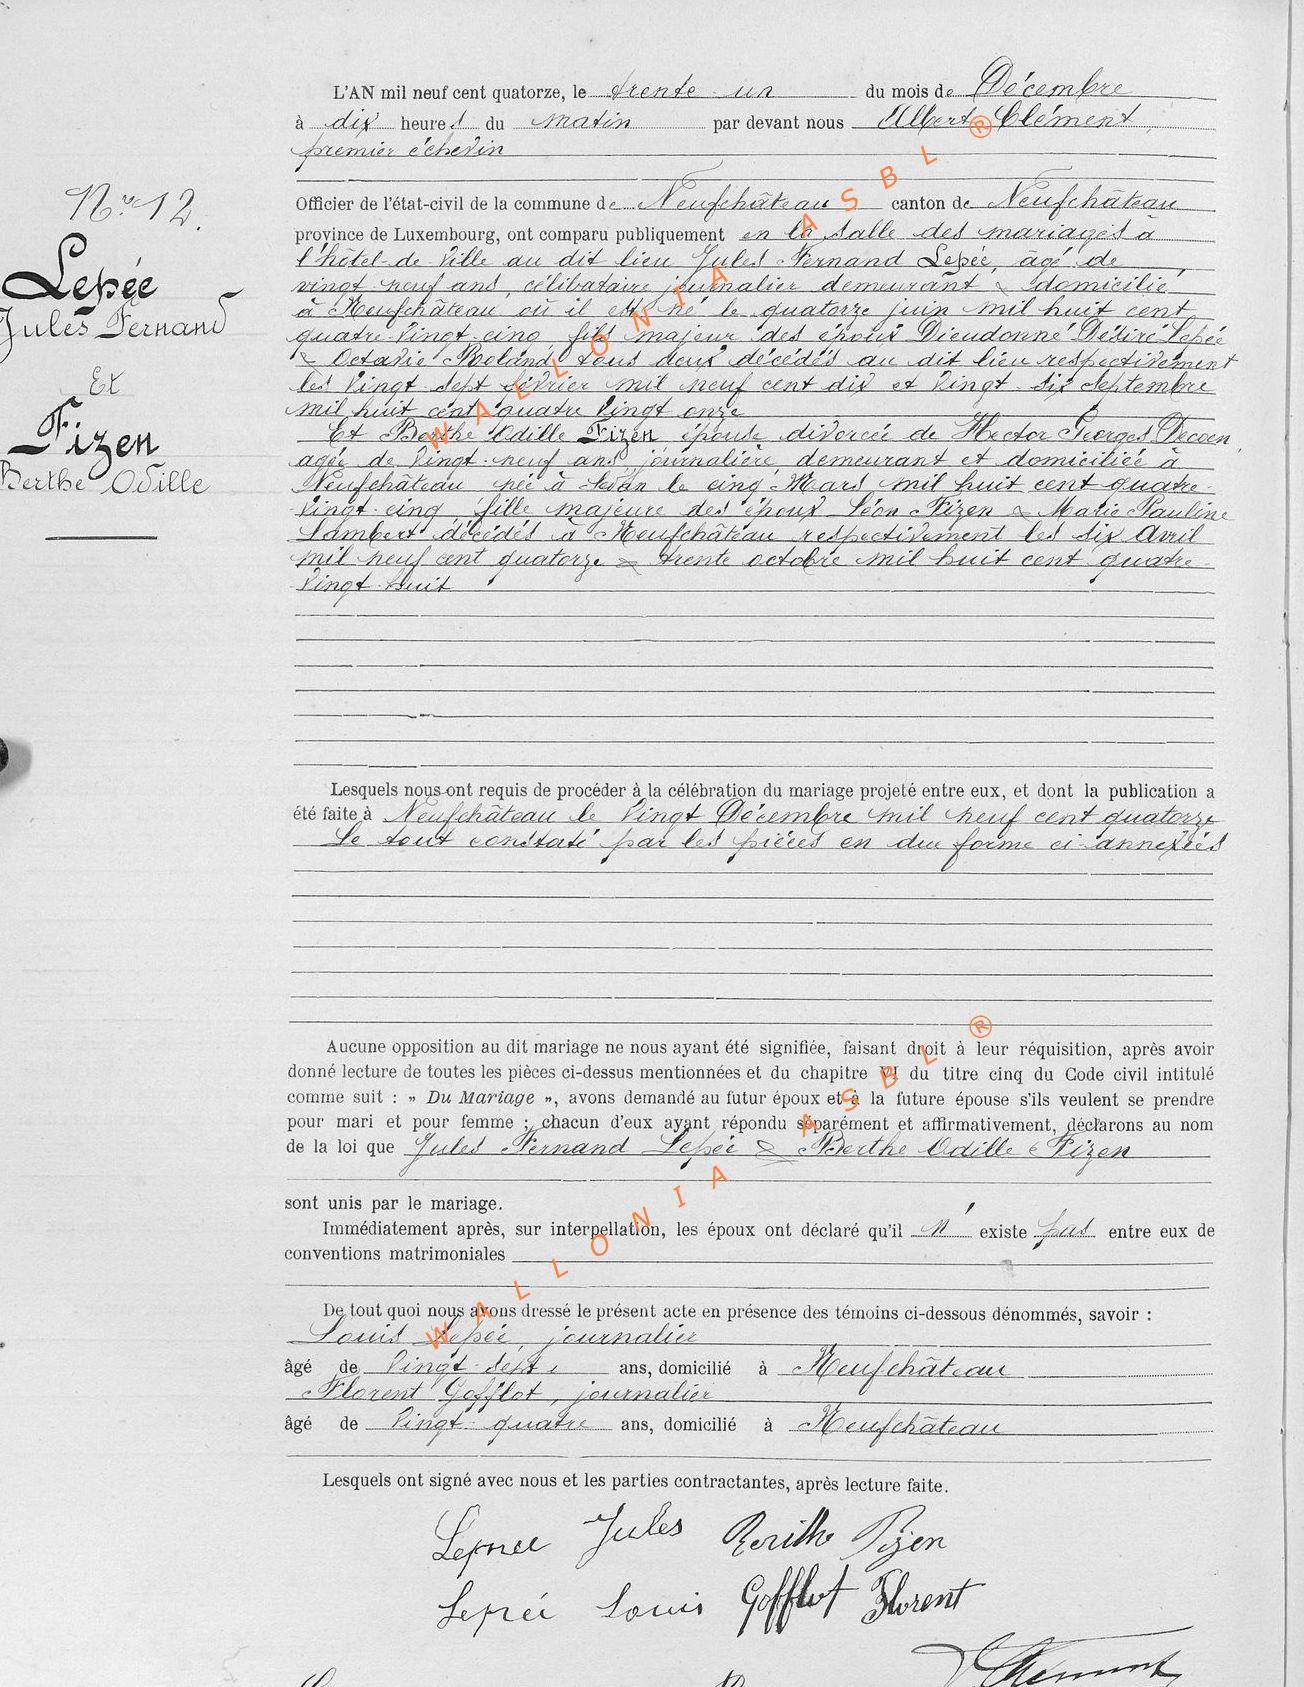 L'AN mil neuf cent quatorze, le trente un du mois de Décembre
à dix heures du matin par devant nous Albert Clément,
premier échevin
Nº 12.
Officier de l'état-civil de la commune de Neufchâteau canton de Neufchâteau
province de Luxembourg, ont comparu publiquement en la salle des mariages à
l'hôtel de Ville au dit lieu Jules Fernand Lepée, agé de
vingt-neuf ans, célibataire journalier demeurant & domicilié
à Neufchâteau où il est né le quatorze juin mil huit cent
quatre-Vingt-cinq fils majeur des époux Dieudonné Désiré Lepée
& Octavie Roland, tous deux décédés au dit lieu respectivement
les Vingt-sept février mil neuf cent dix et Vingt-six Septembre
mil huit cent quatre Vingt onze
Lepée
Jules Fernand
Et
Fizen
Berthe Odille
Et Berthe Odille Fizen épouse divorcée de Hector Georges Decoen
agée de Vingt-neuf ans, journalière, demeurant et domiciliée à
Neufchâteau, née à Sedan le cinq Mars mil huit cent quatre-
Vingt-cinq fille majeure des époux Léon Fizen & Marie Pauline
Lambert décédés à Neufchâteau respectivement les six Avril
mil neuf cent quatorze & trente octobre mil huit cent quatre-
Vingt-huit
Lesquels nous ont requis de procéder à la célébration du mariage projeté entre eux, et dont la publication a
été faite à Neufchâteau le Vingt Décembre mil neuf cent quatorze
Le tout constaté par les pièces en due forme ci-annexées
Aucune opposition au dit mariage ne nous ayant été signifiée, faisant droit à leur réquisition, après avoir
donné lecture de toutes les pièces ci-dessus mentionnées et du chapitre VI du titre cinq du Code civil intitulé
comme suit : » Du Mariage », avons demandé au futur époux et à la future épouse s'ils veulent se prendre
pour mari et pour femme ; chacun d'eux ayant répondu séparément et affirmativement, déclarons au nom
de la loi que Jules Fernand Lepée & Berthe Odille Fizen
sont unis par le mariage.
Immédiatement après, sur interpellation, les époux ont déclaré qu'il n' existe pas entre eux de
conventions matrimoniales
De tout quoi nous avons dressé le présent acte en présence des témoins ci-dessous dénommés, savoir :
Louis Lepée, journalier
âgé de Vingt-sept ans, domicilié à Neufchâteau
Florent Gofflot, journalier
âgé de Vingt-quatre ans, domicilié à Neufchâteau
Lesquels ont signé avec nous et les parties contractantes, après lecture faite.
Lepnee Jules Berthe Fizen
Lepée Louis Gofflot Florent
Clément
WALLONIA ASBL ®
WALLONIA ASBL ®